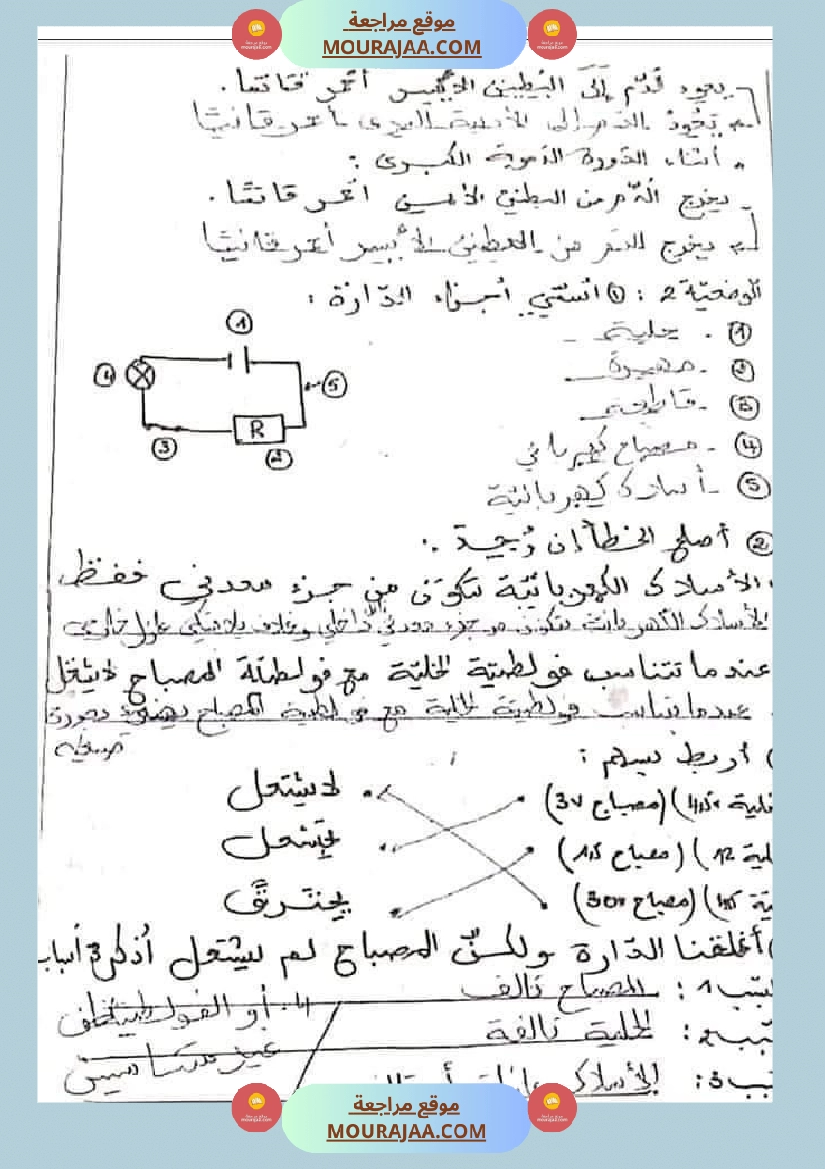 موقع مراجعة
MOURAJAA.COM
- يعود الدم إلى البطين الأيمن أحمر قاتما.
يعود الدم إلى الأذينة اليسرى أحمر قانيا
• أثناء الدورة الدموية الكبرى :
- يخرج الدّم من البطين الأيمن أحمر قاتما.
يخرج الدم من البطين الأيسر أحمر قانيا
الوضعيّة 2 : ① أسمّي أجزاء الدّارة :
① - خلية
② - مصهرة
③ - قاطعة
④ - مصباح كهربائي
⑤ - أسلاك كهربائيّة
① ④ ⑤ ③ R ②
② أصلح الخطأ إن وُجد :
الأسلاك الكهربائيّة تتكوّن من جزء معدني فقط
الأسلاك الكهربائية تتكون من جزء معدني داخلي وغلاف بلاستيكي عازل خارجي
عندما تتناسب فولطيّة الخليّة مع فولطيّة المصباح لا يشتعل
عندما تتناسب فولطية الخلية مع فولطية المصباح يضيء بصورة
) أربط بسهم :
(مصباح 3v) لا يشتعل
(مصباح 1,5) يشتعل
(مصباح 30v) يحترق
) أغلقنا الدّارة ولكنّ المصباح لم يشتعل أذكر 3 أسباب
1 : المصباح تالف
2 : الخلية تالفة
3 : الأسلاك
4. أو الفولطية
غير متناسبتين
موقع مراجعة
MOURAJAA.COM